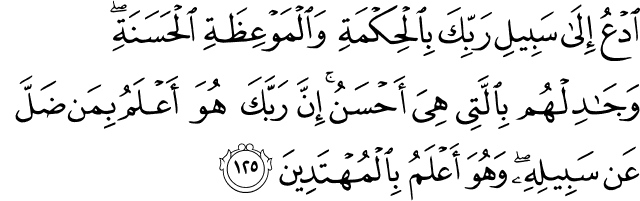 ٱدْعُ إِلَىٰ سَبِيلِ رَبِّكَ بِٱلْحِكْمَةِ وَٱلْمَوْعِظَةِ ٱلْحَسَنَةِ ۖ
وَجَـٰدِلْهُم بِٱلَّتِى هِىَ أَحْسَنُ ۚ إِنَّ رَبَّكَ هُوَ أَعْلَمُ بِمَن ضَلَّ
عَن سَبِيلِهِۦ ۖ وَهُوَ أَعْلَمُ بِٱلْمُهْتَدِينَ ١٢٥